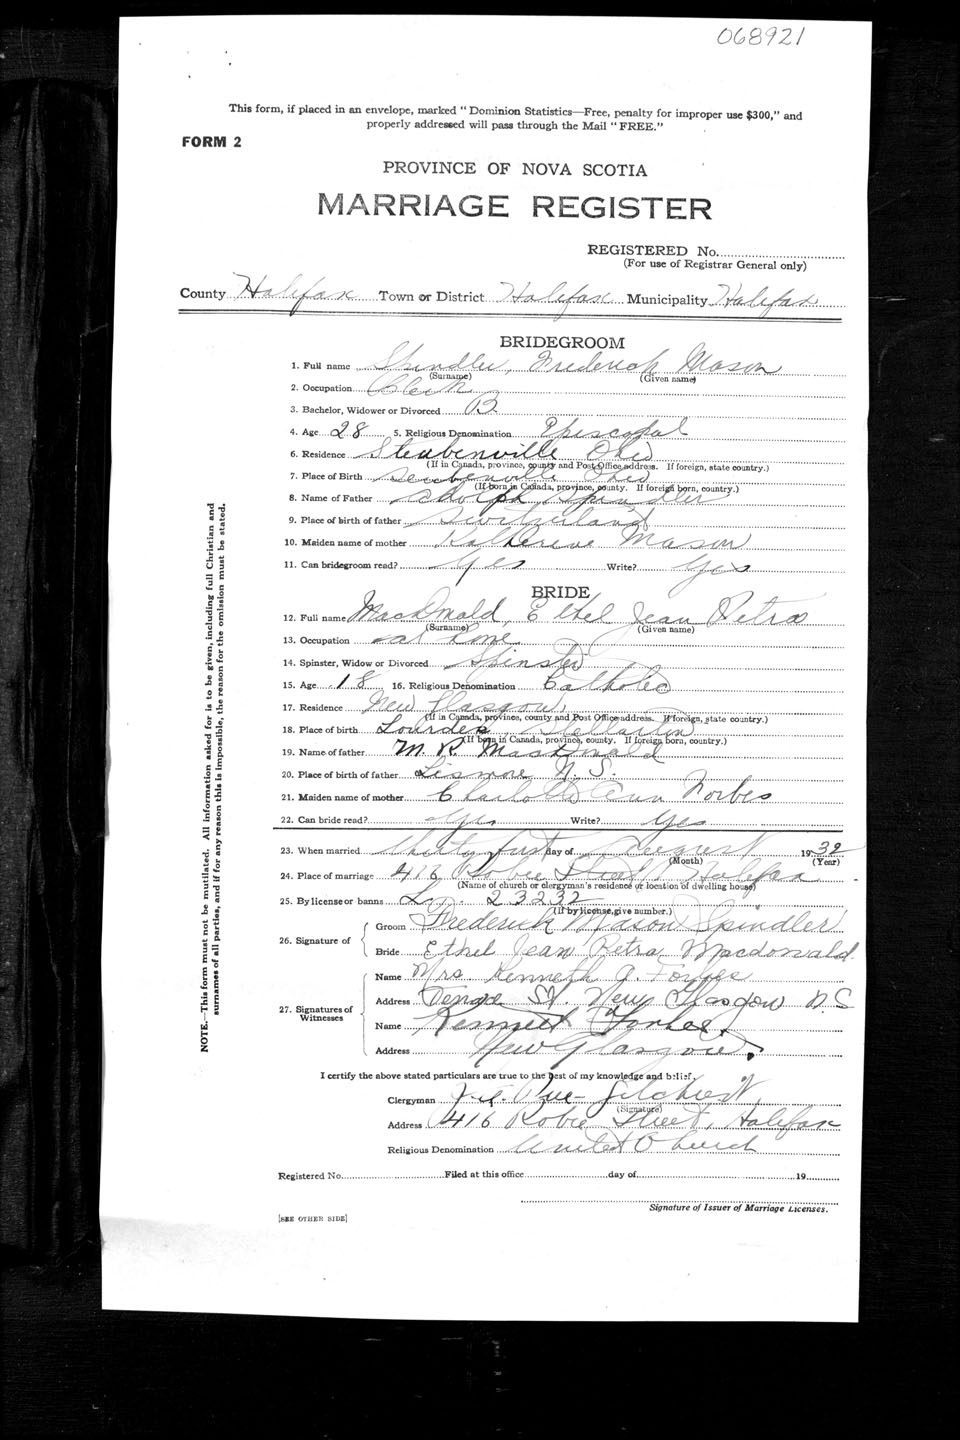 068921
This form, if placed in an envelope, marked "Dominion Statistics—Free, penalty for improper use $300," and
properly addressed will pass through the Mail "FREE."
FORM 2
PROVINCE OF NOVA SCOTIA
MARRIAGE REGISTER
REGISTERED No.
(For use of Registrar General only)
County Halifax Town or District Halifax Municipality Halifax
BRIDEGROOM
1. Full name Spindler, Frederick Mason
(Surname) (Given name)
2. Occupation Clerk
3. Bachelor, Widower or Divorced B
4. Age 28 5. Religious Denomination Episcopal
6. Residence Steubenville Ohio
(If in Canada, province, county and Post Office address. If foreign, state country.)
7. Place of Birth Steubenville Ohio
(If born in Canada, province, county. If foreign born, country.)
8. Name of Father Adolph Spindler
9. Place of birth of father Switzerland
10. Maiden name of mother Katherine Mason
11. Can bridegroom read? Yes Write? Yes
BRIDE
12. Full name MacDonald, Ethel Jean Petra
(Surname) (Given name)
13. Occupation at home
14. Spinster, Widow or Divorced Spinster
15. Age 18 16. Religious Denomination Catholic
17. Residence New Glasgow
(If in Canada, province, county and Post Office address. If foreign, state country.)
18. Place of birth Lourdes, Stellarton
(If born in Canada, province, county. If foreign born, country.)
19. Name of father M. R. MacDonald
20. Place of birth of father Lismore N. S.
21. Maiden name of mother Charlotte Ann Forbes
22. Can bride read? Yes Write? Yes
23. When married thirty first day of August 1932
(Month) (Year)
24. Place of marriage 416 Robie Street Halifax
(Name of church or clergyman's residence or location of dwelling house)
25. By license or banns L. 23232
(If by license, give number.)
26. Signature of Groom Frederick Mason Spindler
Bride Ethel Jean Petra Macdonald.
27. Signatures of Witnesses Name Mrs Kenneth A. Forbes
Address St. New Glasgow N.S
Name Kenneth Forbes.
Address New Glasgow.
I certify the above stated particulars are true to the best of my knowledge and belief.
Clergyman Gilchrist
(Signature)
Address 416 Robie Street, Halifax
Religious Denomination United Church
Registered No. Filed at this office day of 19
Signature of Issuer of Marriage Licenses.
[SEE OTHER SIDE]
NOTE.—This form must not be mutilated. All information asked for is to be given, including full Christian and
surnames of all parties, and if for any reason this is impossible, the reason for the omission must be stated.